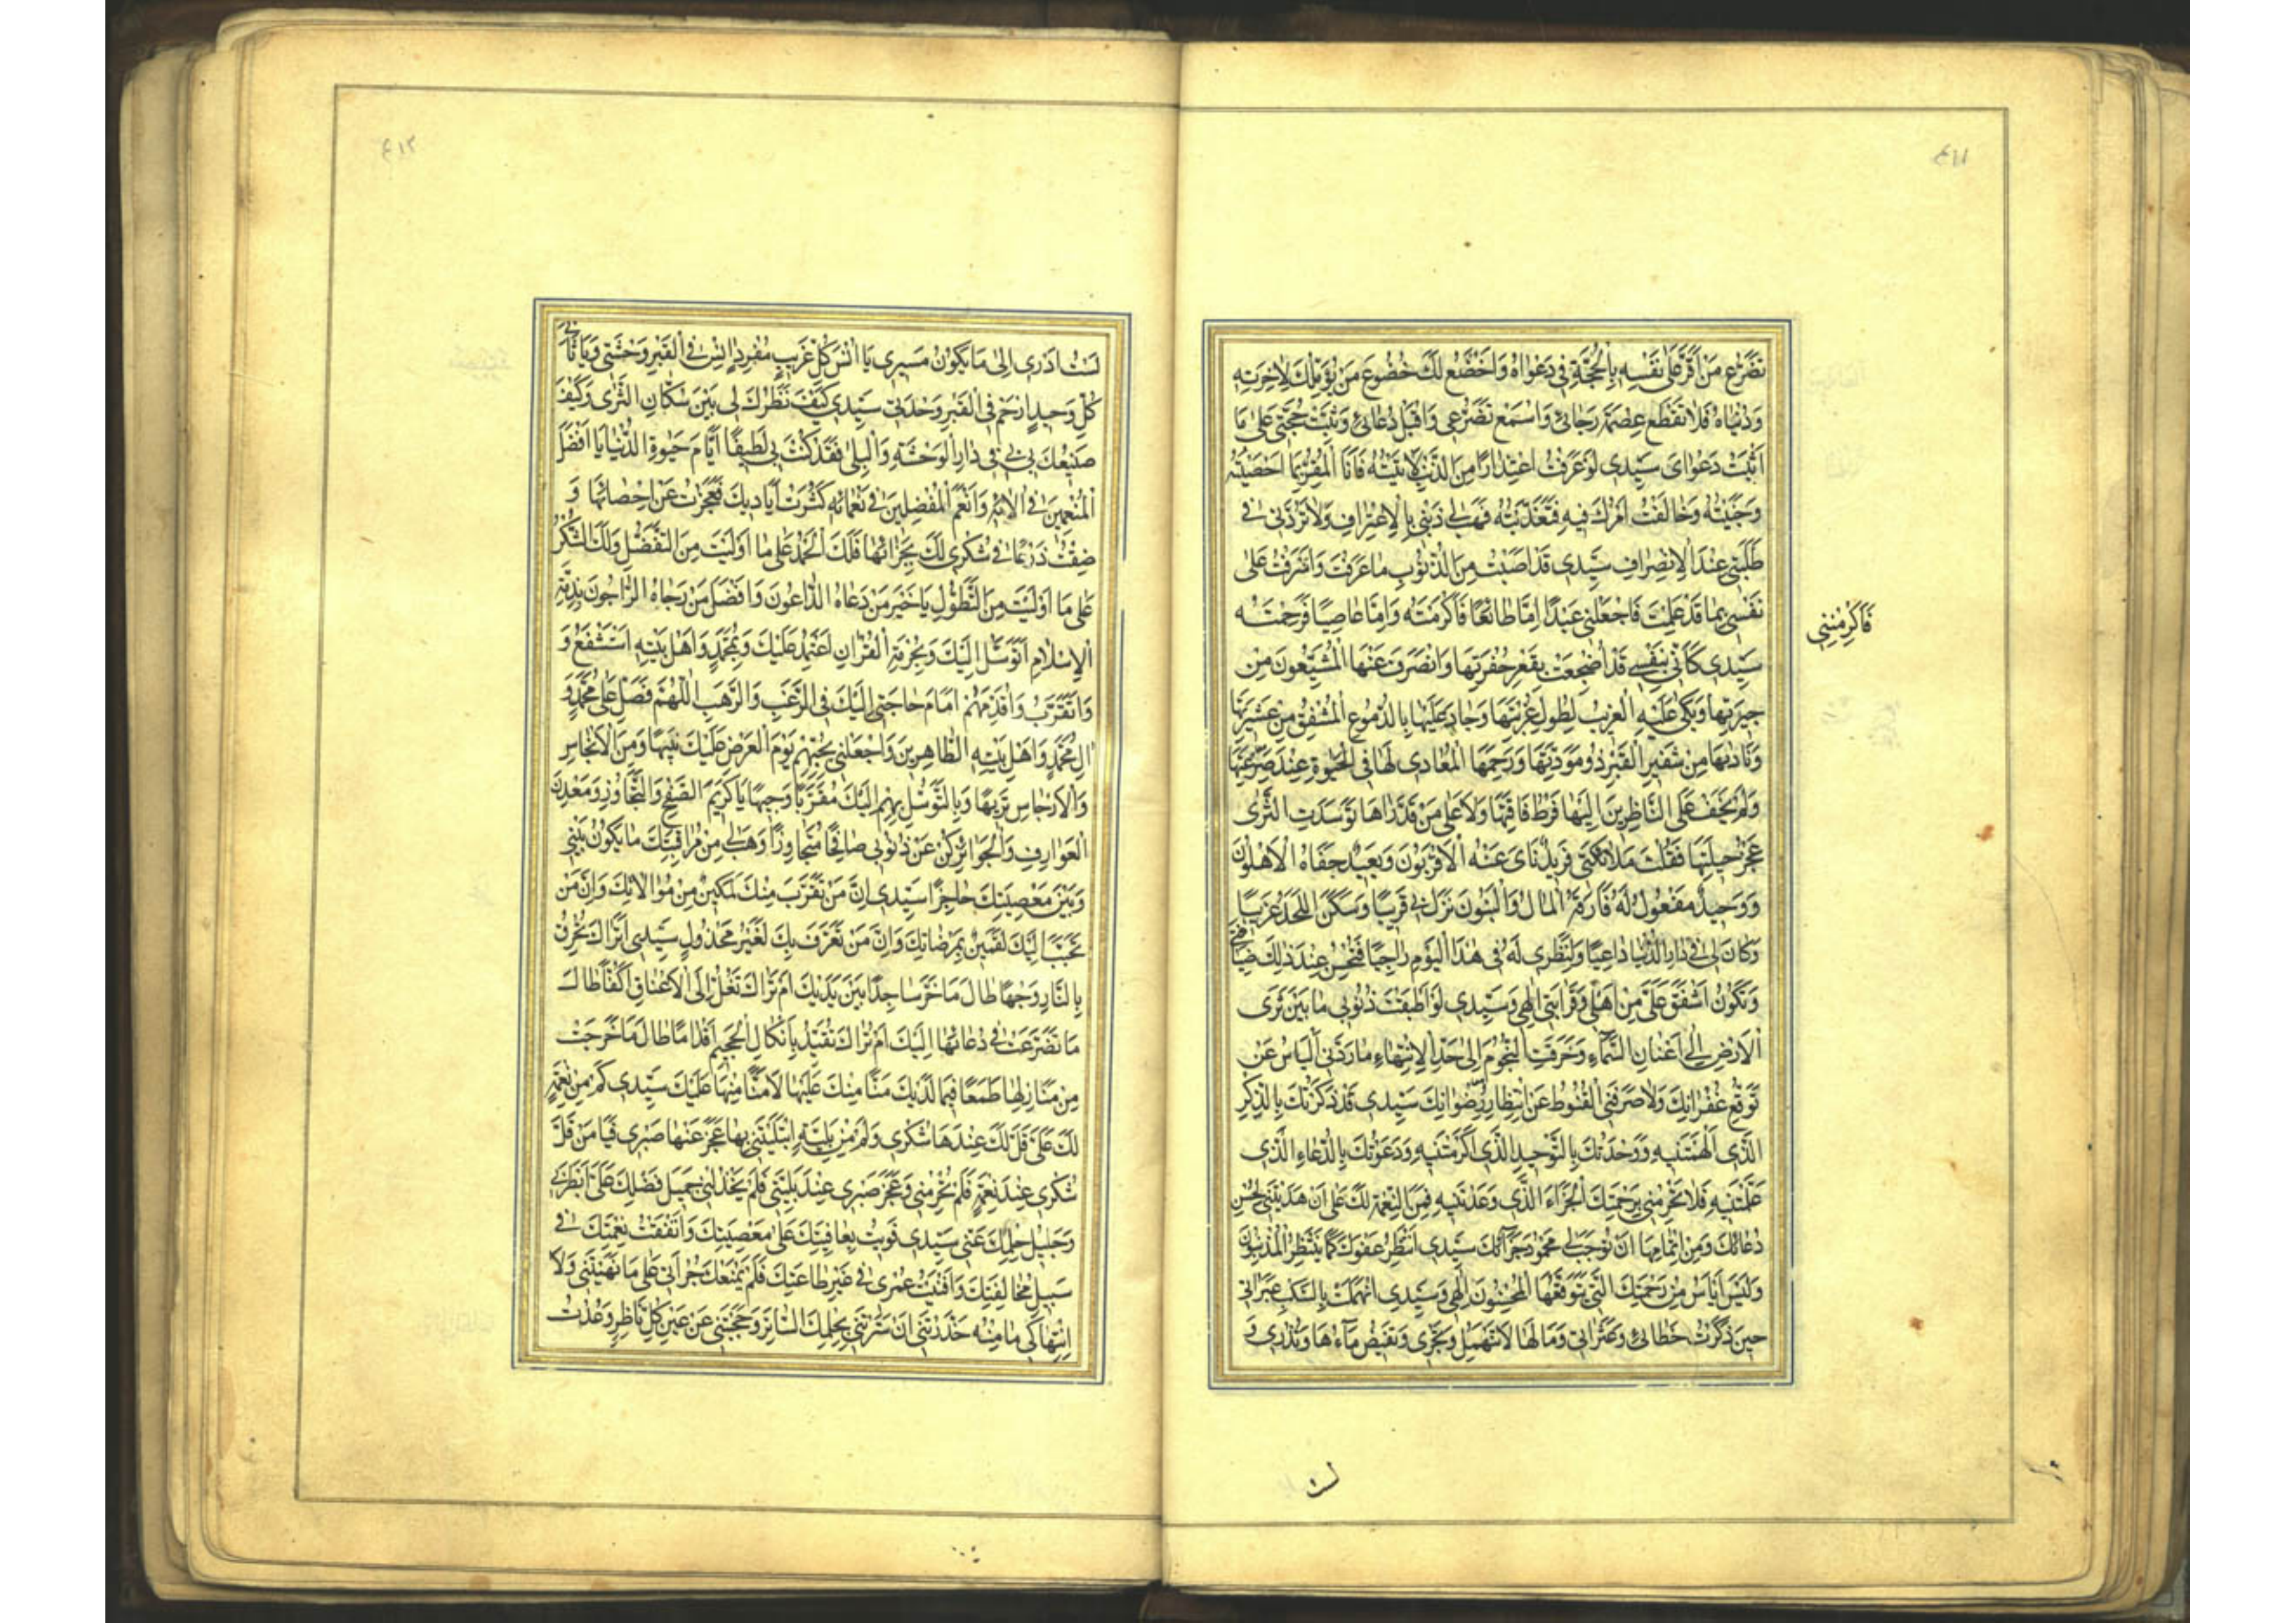 ٤١١
تَضَرُّعَ مَنْ اَقَرَّ عَلىٰ نَفْسِهِ بِالْحُجَّةِ فِي دَعْوَاهُ وَاَخْضَعُ لَكَ خُضُوعَ مَنْ يُؤَمِّلُكَ لِاٰخِرَتِهِ
وَدُنْيَاهُ فَلَا تَقْطَعْ عِصْمَةَ رَجَائِي وَاسْمَعْ تَضَرُّعِي وَاقْبَلْ دُعَائِي وَثَبِّتْ حُجَّتِي عَلىٰ مَا
اَثْبَتَّ دَعْوَايَ سَيِّدِي لَوْ عَرَفْتُ اعْتِذَارًا مِنَ الذَّنْبِ لَاَتَيْتُهُ فَاَنَا الْمُقِرُّ بِمَا اَحْصَيْتَهُ
وَجَنَيْتُهُ وَخَالَفْتُ اَمْرَكَ فِيهِ فَتَعَدَّيْتُهُ فَهَبْ لِي ذَنْبِي بِالْاِعْتِرَافِ وَلَا تَرُدَّنِي فِي
طَلِبَتِي عِنْدَ الْاِنْصِرَافِ سَيِّدِي قَدْ اَصَبْتُ مِنَ الذُّنُوبِ مَا عَرَفْتَ وَاَسْرَفْتُ عَلىٰ
نَفْسِي بِمَا قَدْ عَلِمْتَ فَاجْعَلْنِي عَبْدًا اِمَّا طَائِعًا فَاَكْرَمْتَهُ وَاِمَّا عَاصِيًا فَرَحِمْتَهُ
فَاَكْرَمْتَنِي
سَيِّدِي كَاَنِّي بِنَفْسِي قَدْ اُضْجِعَتْ بِقَعْرِ حُفْرَتِهَا وَانْصَرَفَ عَنْهَا الْمُشَيِّعُونَ مِنْ
جِيرَتِهَا وَبَكىٰ عَلَيْهِ الْغَرِيبُ لِطُولِ غُرْبَتِهَا وَجَادَ عَلَيْهَا بِالدُّمُوعِ الْمُشْفِقُ مِنْ عَشِيرَتِهَا
وَنَادٰيهَا مِنْ شَفِيرِ الْقَبْرِ ذُو مَوَدَّتِهَا وَرَحِمَهَا الْمُعَادِي لَهَا فِي الْحَيٰوةِ عِنْدَ صَرْعَتِهَا
وَلَمْ يَخْفَ عَلَى النَّاظِرِينَ اِلَيْهَا فَرْطُ فَاقَتِهَا وَلَا عَلىٰ مَنْ قَدْ رَاٰهَا تَوَسَّدَتِ الثَّرىٰ
عَجْزُ حِيلَتِهَا فَقُلْتَ مَلَائِكَتِي فَرِيدٌ نَاىٰ عَنْهُ الْاَقْرَبُونَ وَبَعِيدٌ جَفَاهُ الْاَهْلُونَ
وَوَحِيدٌ مَفْعُولٌ لَهُ فَارَقَهُ الْمَالُ وَالْبَنُونَ نَزَلَ بِي قَرِيبًا وَسَكَنَ اللَّحْدَ غَرِيبًا
وَكَانَ لِي فِي دَارِ الدُّنْيَا دَاعِيًا وَلِنَظَرِي لَهُ فِي هٰذَا الْيَوْمِ رَاجِيًا فَتُحْسِنُ عِنْدَ ذٰلِكَ ضِيَافَتِي
وَتَكُونُ اَشْفَقَ عَلَيَّ مِنْ اَهْلِي وَقَرَابَتِي اِلٰهِي وَسَيِّدِي لَوْ اَطْبَقَتْ ذُنُوبِي مَا بَيْنَ ثَرَى
الْاَرْضِ اِلىٰ اَعْنَانِ السَّمَاءِ وَخَرَقَتِ النُّجُومَ اِلىٰ حَدِّ الْاِنْتِهَاءِ مَا رَدَّنِي الْيَاْسُ عَنْ
تَوَقُّعِ غُفْرَانِكَ وَلَا صَرَفَنِي الْقُنُوطُ عَنِ انْتِظَارِ رِضْوَانِكَ سَيِّدِي قَدْ ذَكَرْتُكَ بِالذِّكْرِ
الَّذِي اَلْهَمْتَنِيهِ وَوَحَّدْتُكَ بِالتَّوْحِيدِ الَّذِي اَكْرَمْتَنِيهِ وَدَعَوْتُكَ بِالدُّعَاءِ الَّذِي
عَلَّمْتَنِيهِ فَلَا تَحْرِمْنِي بِرَحْمَتِكَ الْجَزَاءَ الَّذِي وَعَدْتَنِيهِ فَمِنَ النِّعْمَةِ لَكَ عَلَيَّ اَنْ هَدَيْتَنِي لِحُسْنِ
دُعَائِكَ وَمِنْ اِتْمَامِهَا اَنْ تُوجِبَ لِي مَحْمُودَ جَزَائِكَ سَيِّدِي اَنْتَظِرُ عَفْوَكَ كَمَا يَنْتَظِرُ الْمُذْنِبُونَ
وَلَيْسَ اَيْاَسُ مِنْ رَحْمَتِكَ الَّتِي يَتَوَقَّعُهَا الْمُحْسِنُونَ اِلٰهِي وَسَيِّدِي انْهَمَلَتْ بِالسَّكْبِ عَبَرَاتِي
حِينَ ذَكَرْتُ خَطَائِي وَعَثَرَاتِي وَمَا لَهَا لَا تَنْهَمِلُ وَتَجْرِي وَتَفِيضُ مَاءُهَا وَتَذْرِي وَ
لست
٤١٢
لَسْتُ اَدْرِي اِلىٰ مَا يَكُونُ مَسِيرِي يَا اُنْسَ كُلِّ غَرِيبٍ مُفْرَدٍ اٰنِسْ فِي الْقَبْرِ وَحْشَتِي وَيَا ثَانِيَ
كُلِّ وَحِيدٍ ارْحَمْ فِي الْقَبْرِ وَحْدَتِي سَيِّدِي كَيْفَ نَظَرُكَ لِي بَيْنَ سُكَّانِ الثَّرىٰ وَكَيْفَ
صَنِيعُكَ بِي فِي دَارِ الْوَحْشَةِ وَالْبِلىٰ فَقَدْ كُنْتَ بِي لَطِيفًا اَيَّامَ حَيٰوةِ الدُّنْيَا يَا اَفْضَلَ
الْمُنْعِمِينَ فِي اٰلَائِهِ وَاَنْعَمَ الْمُفْضِلِينَ فِي نَعْمَائِهِ كَثُرَتْ اَيَادِيكَ فَعَجَزْتُ عَنْ اِحْصَائِهَا وَ
ضِقْتُ ذَرْعًا فِي شُكْرِي لَكَ بِجَزَائِهَا فَلَكَ الْحَمْدُ عَلىٰ مَا اَوْلَيْتَ مِنَ التَّفَضُّلِ وَلَكَ الشُّكْرُ
عَلىٰ مَا اَوْلَيْتَ مِنَ التَّطَوُّلِ يَا خَيْرَ مَنْ دَعَاهُ الدَّاعُونَ وَاَفْضَلَ مَنْ رَجَاهُ الرَّاجُونَ بِذِمَّةِ
الْاِسْلَامِ اَتَوَسَّلُ اِلَيْكَ وَبِحُرْمَةِ الْقُرْاٰنِ اَعْتَمِدُ عَلَيْكَ وَبِمُحَمَّدٍ وَاَهْلِ بَيْتِهِ اَسْتَشْفِعُ وَ
وَاَتَقَرَّبُ وَاُقَدِّمُهُمْ اَمَامَ حَاجَتِي اِلَيْكَ فِي الرَّغَبِ وَالرَّهَبِ اَللّٰهُمَّ فَصَلِّ عَلىٰ مُحَمَّدٍ وَ
اٰلِ مُحَمَّدٍ وَاَهْلِ بَيْتِهِ الطَّاهِرِينَ وَاجْعَلْنِي بِحُبِّهِمْ يَوْمَ الْعَرْضِ عَلَيْكَ نَبِيهًا وَمِنَ الْاَنْجَاسِ
وَالْاَرْجَاسِ نَزِيهًا وَبِالتَّوَسُّلِ بِهِمْ اِلَيْكَ مُقَرَّبًا وَجِيهًا يَا كَرِيمَ الصَّفْحِ وَالتَّجَاوُزِ وَمَعْدِنَ
الْعَوَارِفِ وَالْجَوَائِزِ كُنْ عَنْ ذُنُوبِي صَافِحًا مُتَجَاوِزًا وَهَبْ لِي مِنْ مُرَاقَبَتِكَ مَا يَكُونُ بَيْنِي
وَبَيْنَ مَعْصِيَتِكَ حَاجِزًا سَيِّدِي اِنَّ مَنْ تَقَرَّبَ مِنْكَ لَمَكِينٌ مِنْ مُوَالَاتِكَ وَاِنَّ مَنْ
تَحَبَّبَ اِلَيْكَ لَقَمِينٌ بِمَرْضَاتِكَ وَاِنَّ مَنْ تَعَرَّفَ بِكَ لَغَيْرُ مَخْذُولٍ سَيِّدِي اَتُرَاكَ تُحْرِقُ
بِالنَّارِ وَجْهًا طَالَ مَا خَرَّ سَاجِدًا بَيْنَ يَدَيْكَ اَمْ تُرَاكَ تَغُلُّ اِلَى الْاَعْنَاقِ اَكُفًّا طَالَ
مَا تَضَرَّعَتْ فِي دُعَائِهَا اِلَيْكَ اَمْ تُرَاكَ تُقَيِّدُ بِاَنْكَالِ الْجَحِيمِ اَقْدَامًا طَالَ مَا خَرَجَتْ
مِنْ مَنَازِلِهَا طَمَعًا فِيمَا لَدَيْكَ مَنًّا مِنْكَ عَلَيْهَا لَا مَنًّا مِنْهَا عَلَيْكَ سَيِّدِي كَمْ مِنْ نِعْمَةٍ
لَكَ عَلَيَّ قَلَّ لَكَ عِنْدَهَا شُكْرِي وَكَمْ مِنْ بَلِيَّةٍ ابْتَلَيْتَنِي بِهَا عَجَزَ عَنْهَا صَبْرِي فَيَا مَنْ قَلَّ
شُكْرِي عِنْدَ نِعَمِهِ فَلَمْ يَحْرِمْنِي وَعَجَزَ صَبْرِي عِنْدَ بَلِيَّتِي فَلَمْ يَخْذُلْنِي جَمِيلُ فَضْلِكَ عَلَيَّ اَبْطَرَنِي
وَجَلِيلُ حِلْمِكَ عَنِّي سَيِّدِي قَوِيتُ بِعَافِيَتِكَ عَلىٰ مَعْصِيَتِكَ وَاَنْفَقْتُ نِعْمَتَكَ فِي
سَبِيلِ مُخَالَفَتِكَ وَاَفْنَيْتُ عُمْرِي فِي غَيْرِ طَاعَتِكَ فَلَمْ يَمْنَعْكَ جُرْاَتِي عَلىٰ مَا نَهَيْتَنِي وَلَا
انْتِهَاكِي مَا مِنْهُ حَذَّرْتَنِي اَنْ سَتَرْتَنِي بِحِلْمِكَ السَّاتِرِ وَحَجَبْتَنِي عَنْ عَيْنِ كُلِّ نَاظِرٍ وَعُدْتَ